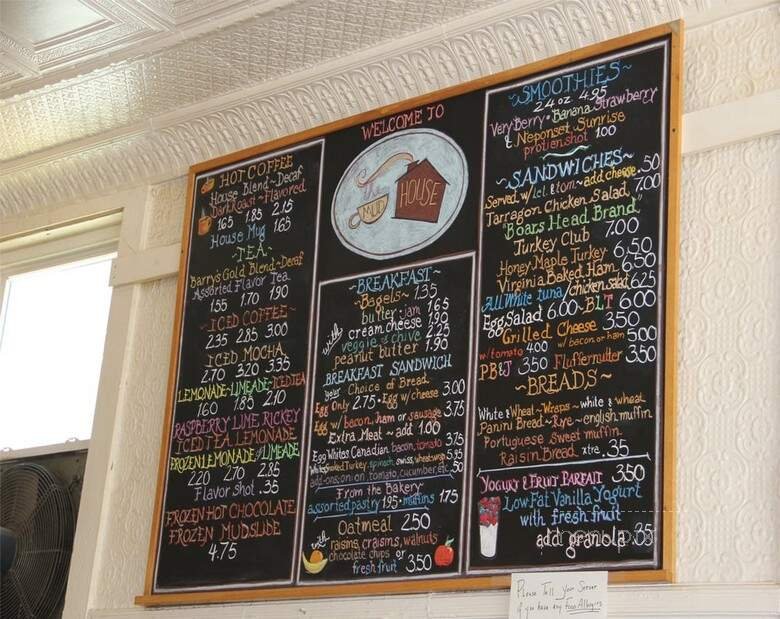 HOT COFFEE
House Blend ~ Decaf
Dark Roast ~ Flavored
1.65 1.85 2.15
House Mug 1.65
~TEA~
Barry's Gold Blend ~ Decaf
Assorted Flavor Tea
1.55 1.70 1.90
~ICED COFFEE~
2.35 2.85 3.00
ICED MOCHA
2.70 3.20 3.35
LEMONADE~LIMEADE~ICED TEA
1.60 1.85 2.10
RASPBERRY LIME RICKEY
ICED TEA LEMONADE
FROZEN LEMONADE or LIMEADE
2.20 2.70 2.85
Flavor Shot .35
FROZEN HOT CHOCOLATE
FROZEN MUDSLIDE
4.75
WELCOME TO
The
MUD
HOUSE
~BREAKFAST~
~Bagels~ 1.35
with
butter ~ jam 1.65
cream cheese 1.90
veggie or chive 2.25
peanut butter 1.90
BREAKFAST SANDWICH
your Choice of Bread
Egg Only 2.75 • Egg w/cheese 3.00
Egg w/ bacon, ham or sausage 3.75
Extra Meat ~ add 1.00
Egg Whites Canadian bacon, tomato 3.75
Smoked Turkey, spinach, swiss, wheat wrap 5.95
add-ons: onion, tomato, cucumber, etc .50
From the Bakery
assorted pastry 1.95 • muffins 1.75
Oatmeal 2.50
with
raisins, craisins, walnuts
chocolate chips or
fresh fruit 3.50
~SMOOTHIES~
24 oz 4.95
Very Berry • Banana Strawberry
& Neponset Sunrise
protien shot 1.00
~SANDWICHES~
Served w/ let. & tom ~ add cheese .50
Tarragon Chicken Salad 7.00
"Boars Head Brand"
Turkey Club 7.00
Honey Maple Turkey 6.50
Virginia Baked Ham 6.50
All White tuna/chicken salad 6.25
Egg Salad 6.00 ~ BLT 6.00
Grilled Cheese 3.50
w/ tomato 4.00 w/ bacon or ham 5.00
PB&J 3.50 Fluffernutter 3.50
~BREADS~
White & Wheat ~ Wraps ~ white & wheat
Panini Bread ~ Rye ~ english muffin
Portuguese Sweet muffin
Raisin Bread xtra .35
YOGURT & FRUIT PARFAIT 3.50
Low Fat Vanilla Yogurt
with fresh fruit
add granola .35
Please Tell Your Server
if you have any Food Allergies